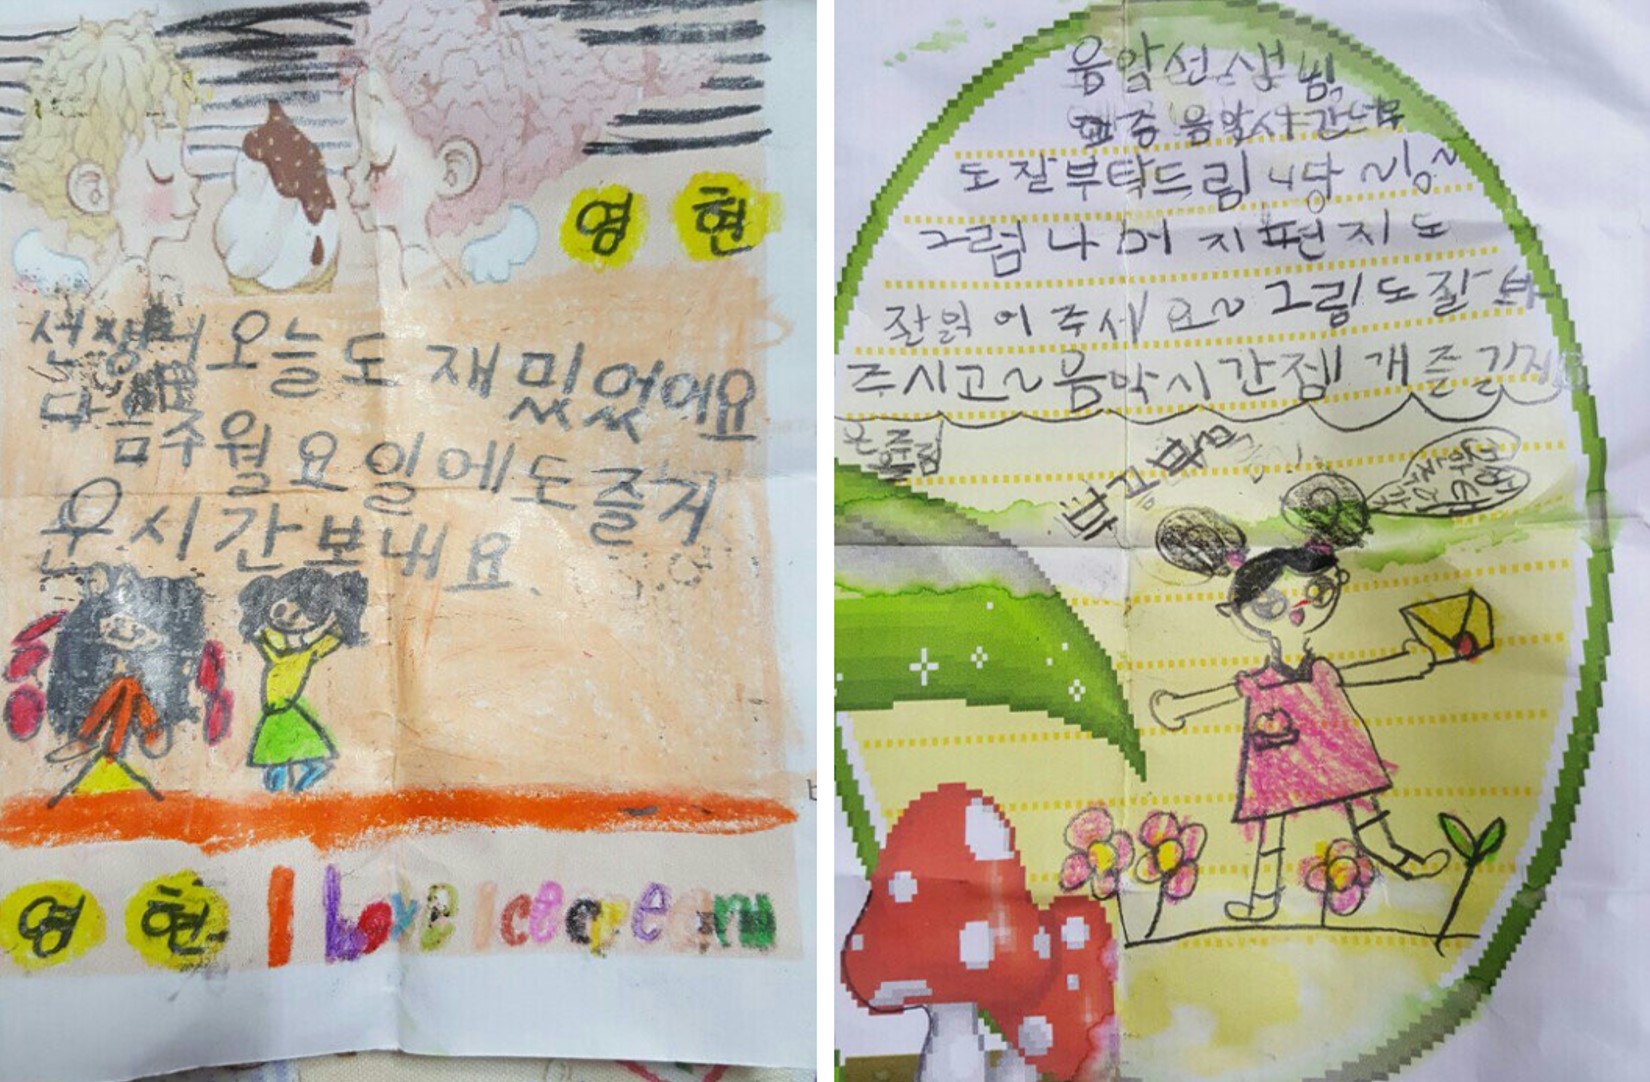 영현
선생니 오늘도 재밌었어요
다음주 월요일에도 즐거
운시간보내요
영현 I love Icecream
음악선생님,
음악시간
도 잘부탁드림니당~잉~
그럼 나머지 편지도
잘읽어주세요~ 그림도 잘 봐
주시고~음악시간 젬 개 즐길